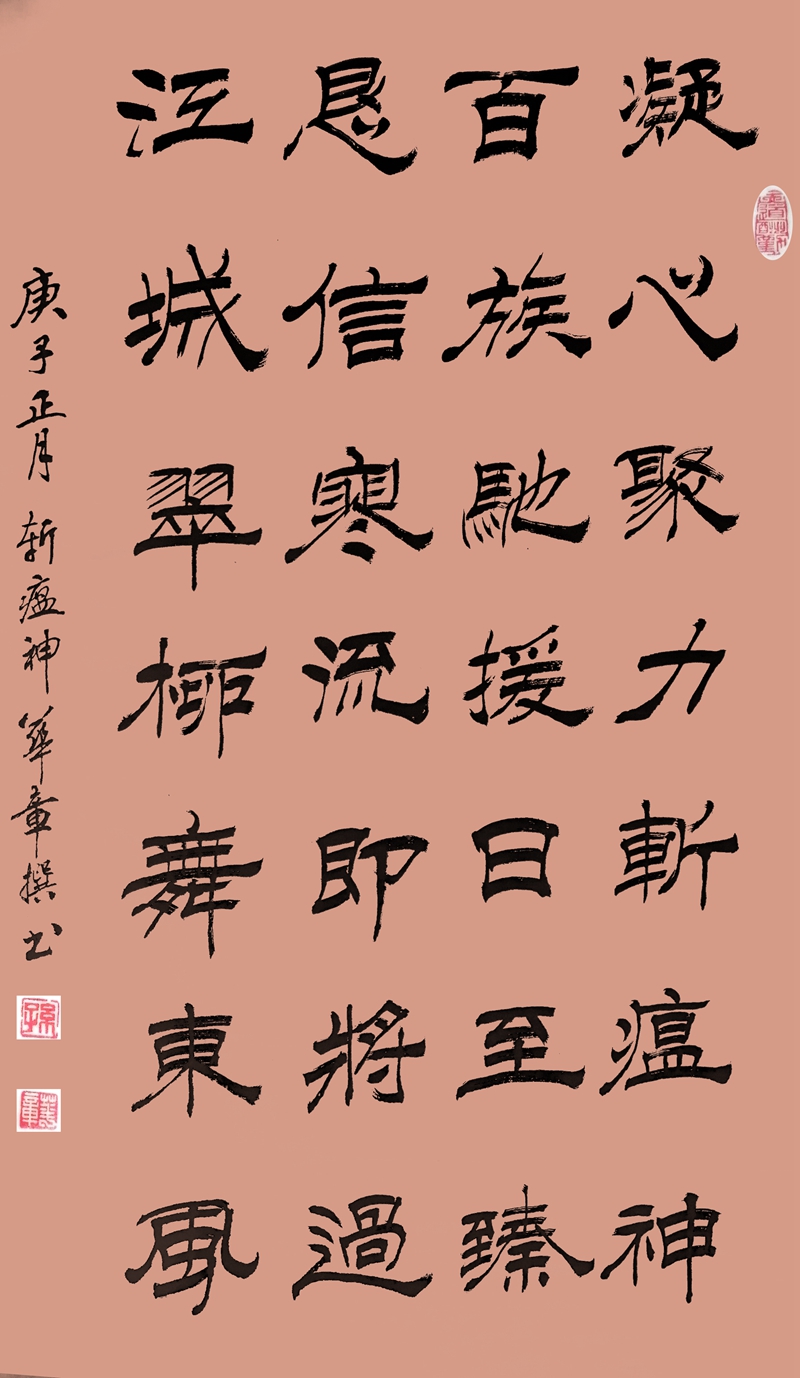 凝心聚力斬瘟神
百族馳援日至臻
恳信寒流即將過
江城翠柳舞東風
庚子正月斩瘟神華章撰书
孫
華章